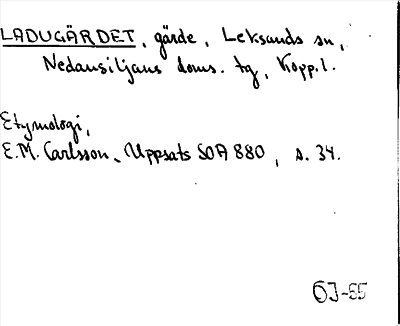 LADUGÄRDET, gärde, Leksands sn,
Nedansiljans doms. tg, Kopp.l.
Etymologi,
E.M. Carlsson, Uppsats SOA 880, s. 34.
ÖJ-55